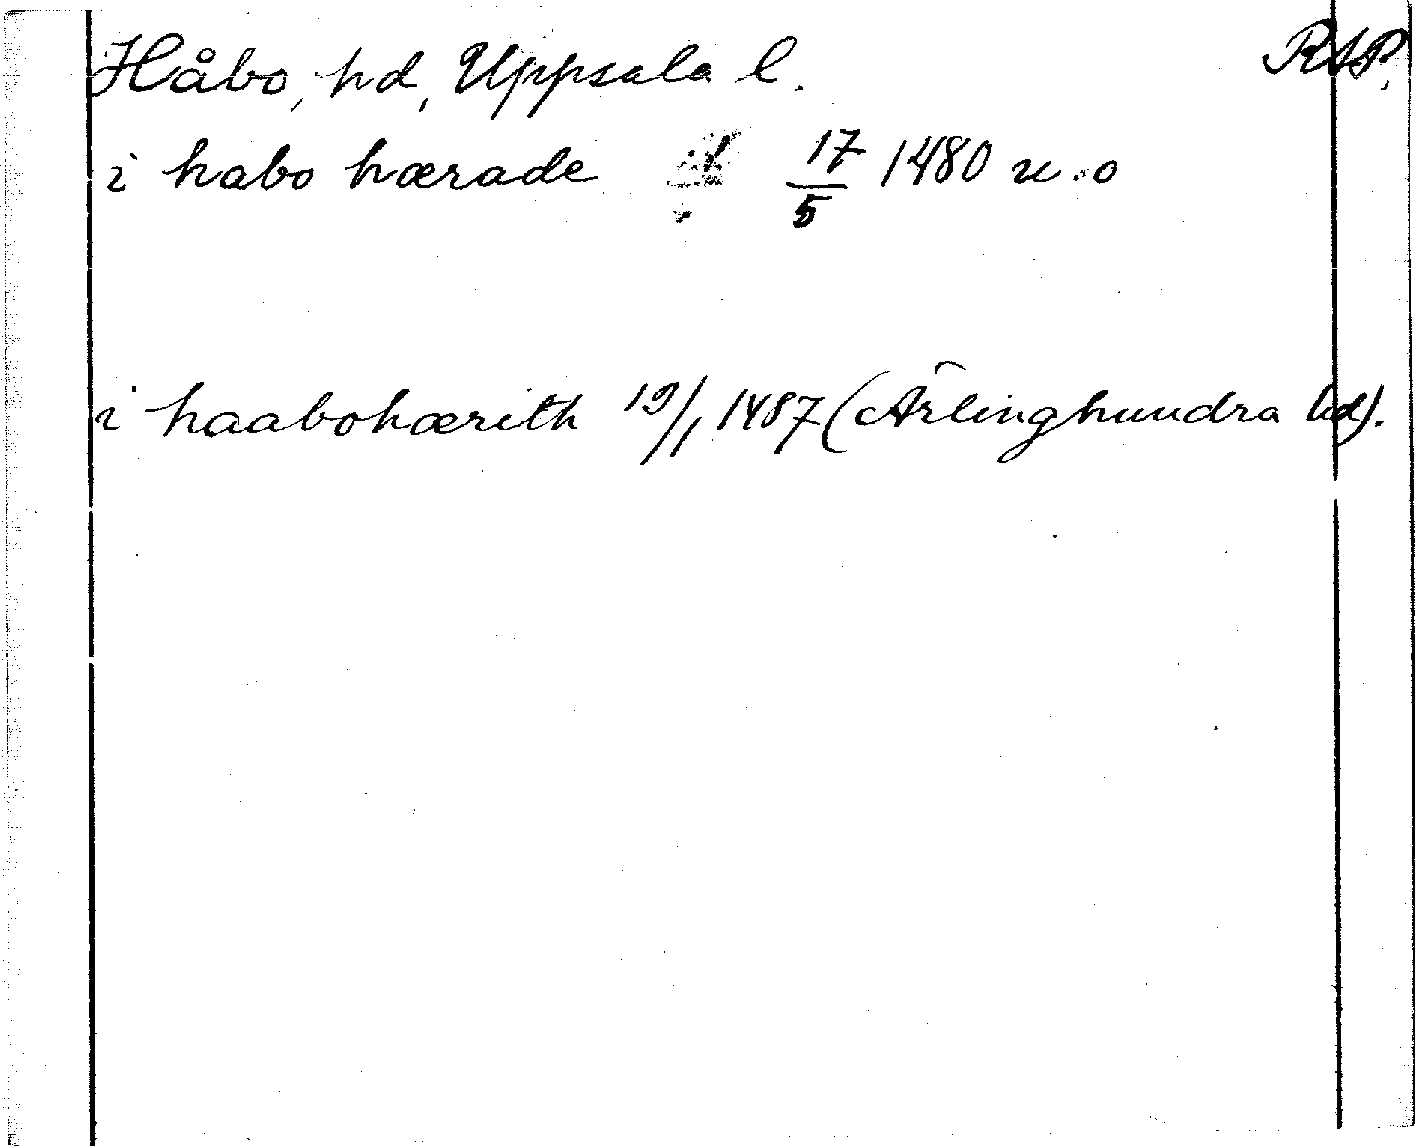 Håbo, hd, Uppsala l. RAP.
i habo hærade 17/5 1480 u. o
i haabohærith 19/1 1487 (Ärlinghundra hd).